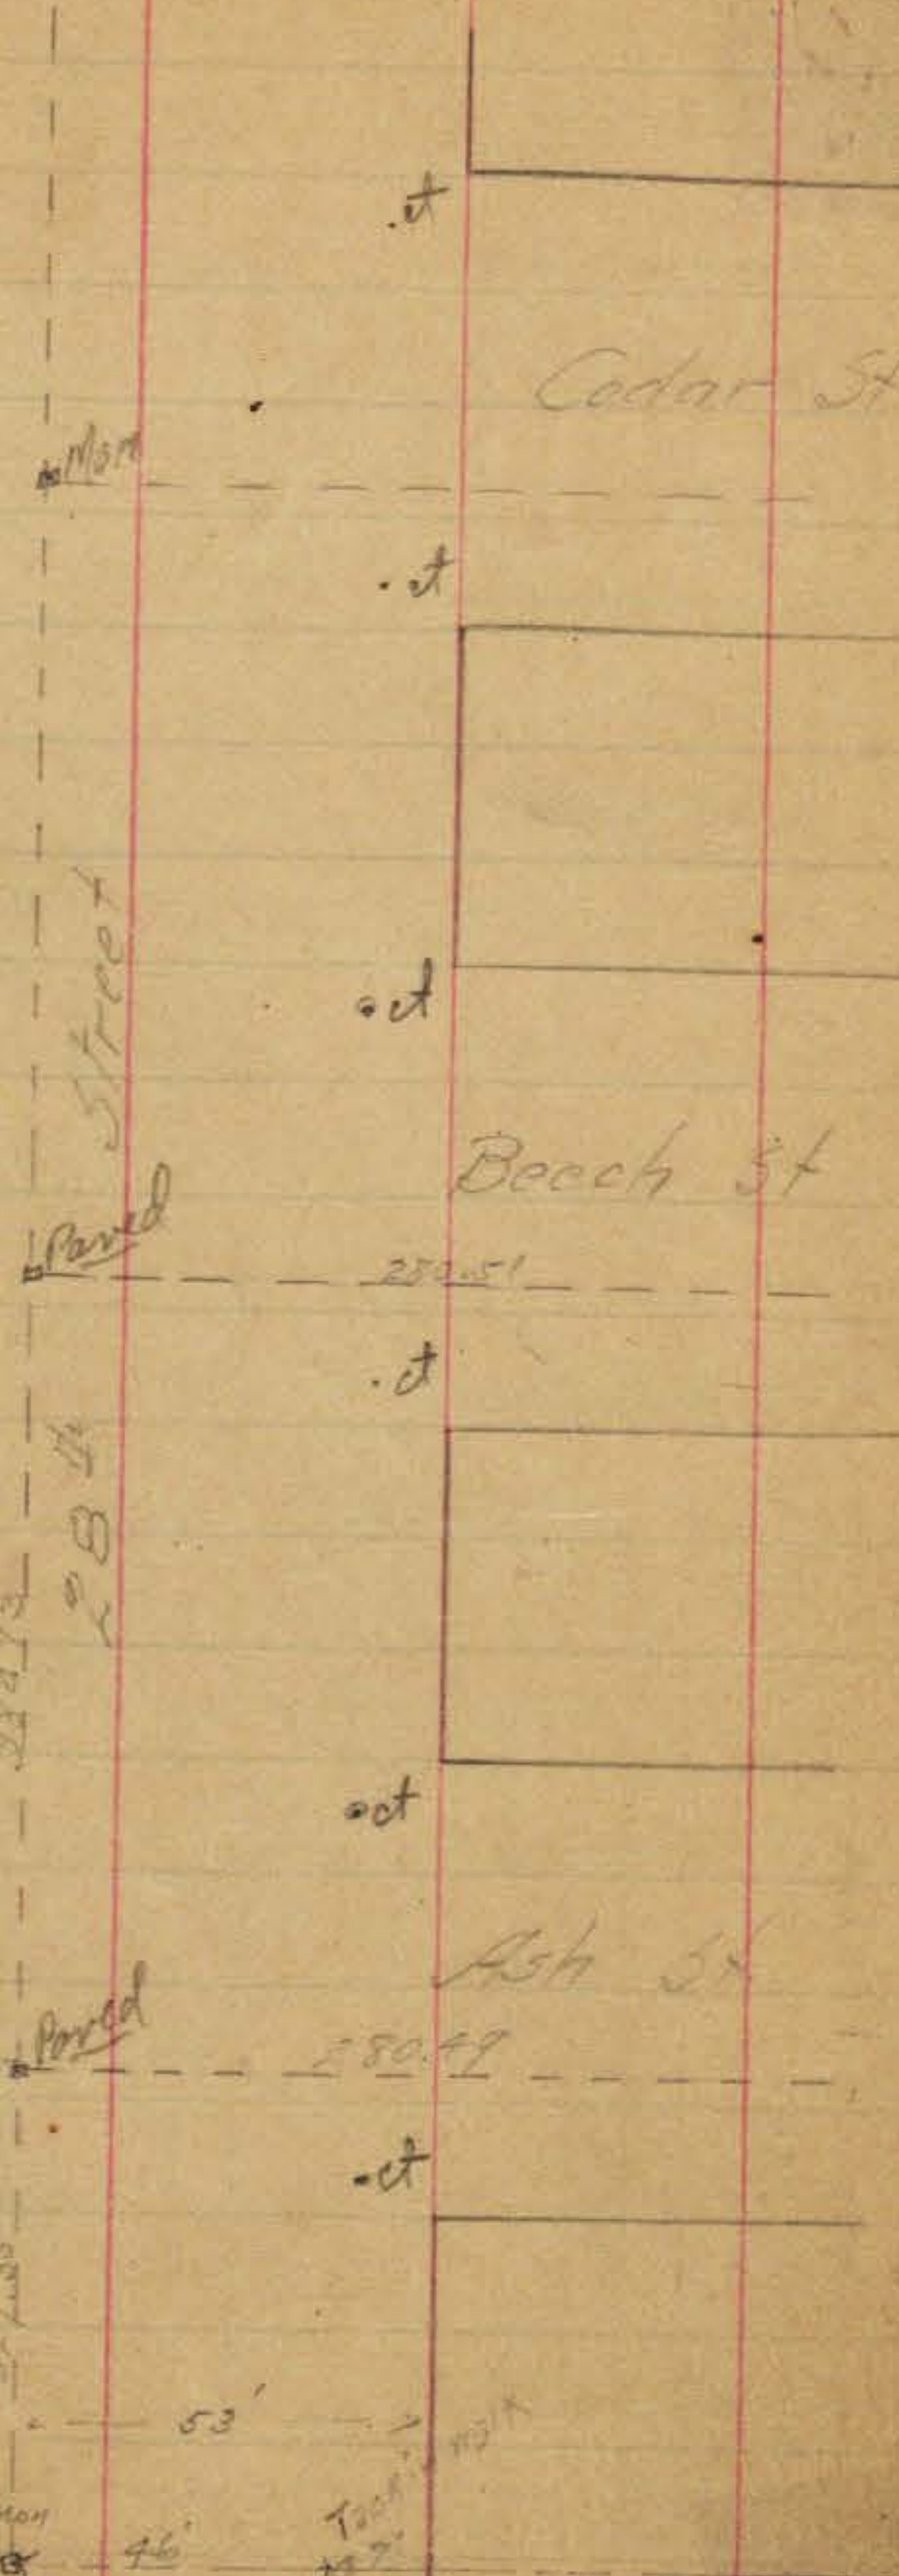 ct
Cedar St
Mon
ct
Street
ct
Beech St
Paved
280.51
ct
28th
ct
Ash St
Paved
280.49
ct
53'
Mon
46'
7'